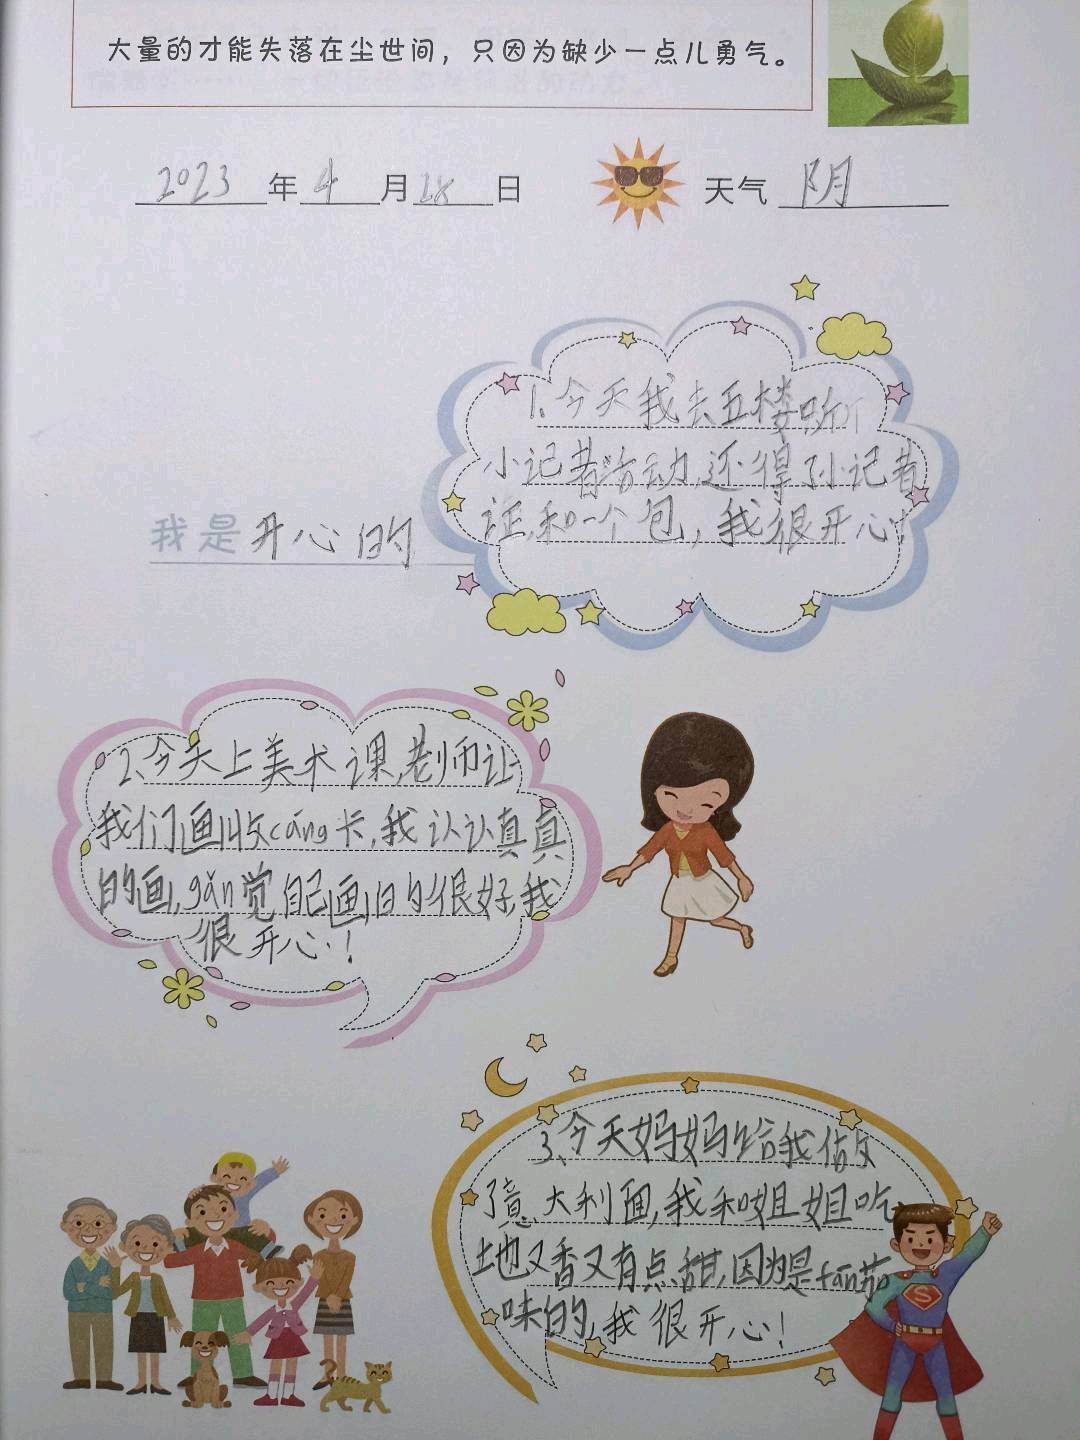 大量的才能失落在尘世间，只因为缺少一点儿勇气。
2023 年 4 月 28 日 天气 阴
我是 开心的
1、今天我去五楼听
小记者活动,还得了小记者
证和一个包，我很开心!
2、今天上美术课,老师让
我们画收cáng卡,我认认真真
的画,gǎn觉自己画的很好,我
很开心!
3、今天妈妈给我做
了意大利面,我和姐姐吃
地又香又有点甜,因为是fān茄
味的,我很开心!